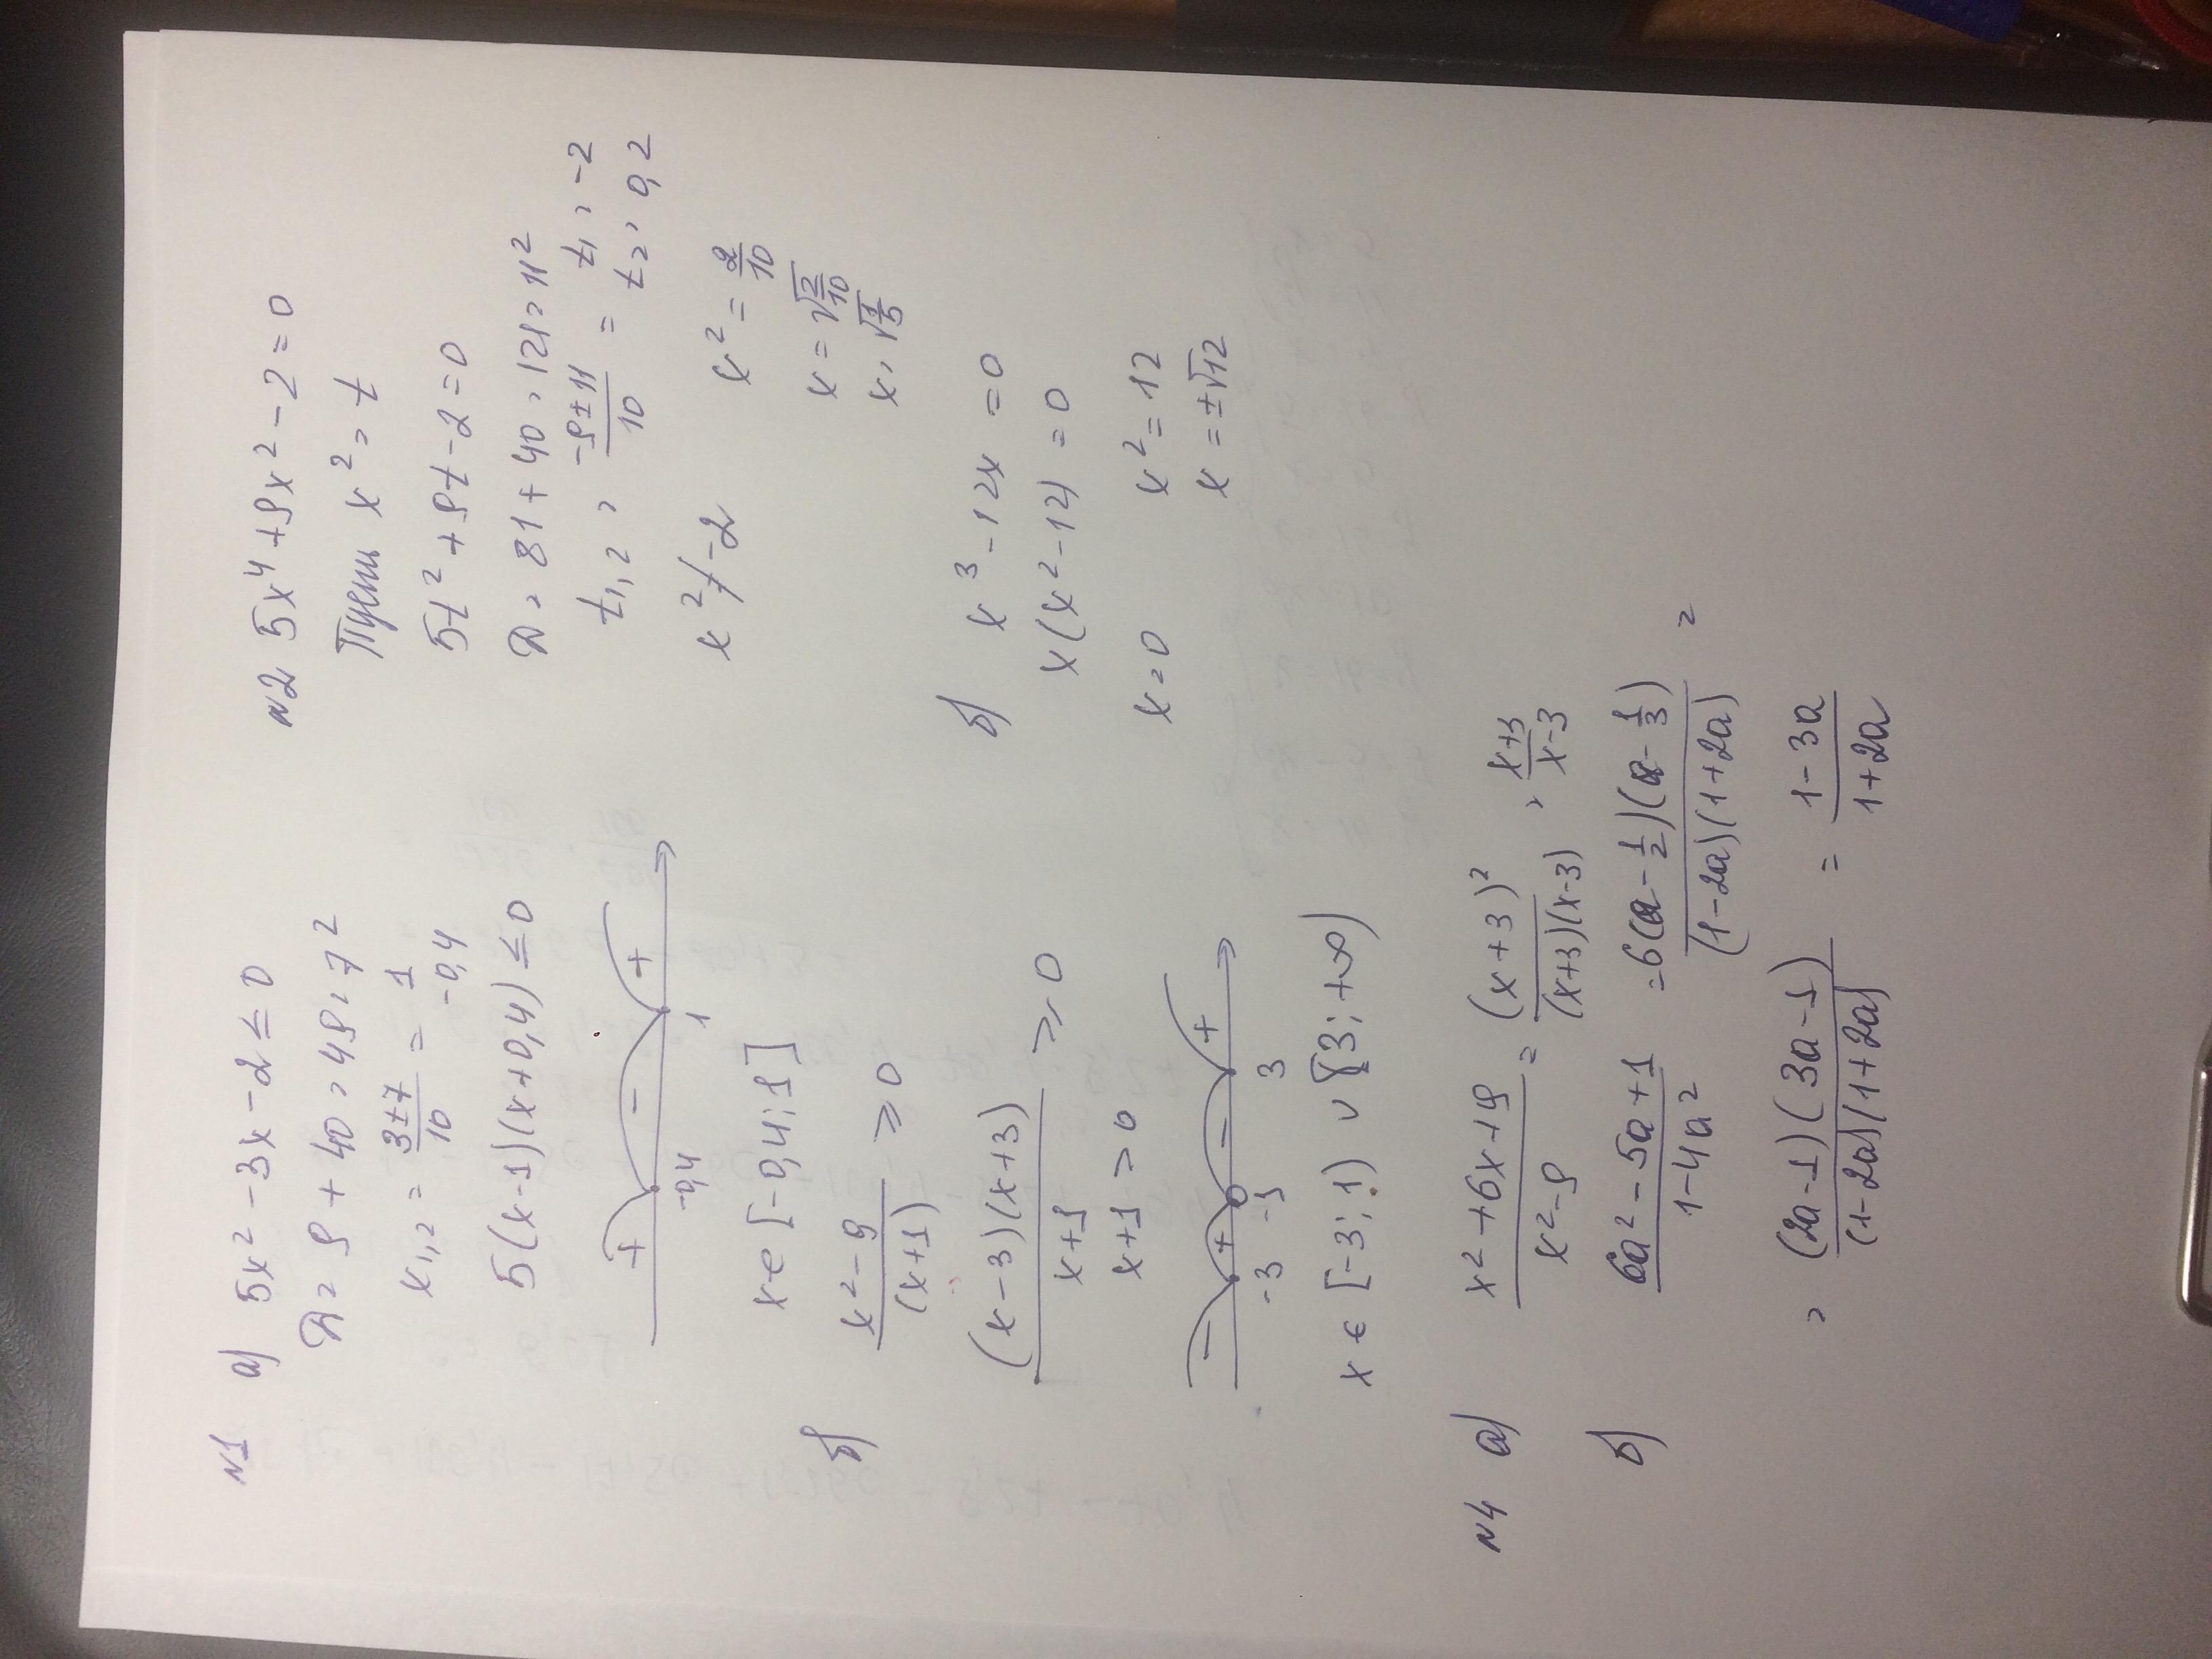 №1 а) 5x² - 3x - 2 ≤ 0
D = 9 + 40 = 49 = 7²
x₁,₂ = (3±7)/10 = 1
-0,4
5(x-1)(x+0,4) ≤ 0
+ - +
-0,4 1
x ∈ [-0,4; 1]
б) (x²-9)/(x+1) ≥ 0
(x-3)(x+3)/(x+1) ≥ 0
x+1 > 0
- + - +
-3 -1 3
x ∈ [-3; 1) ∪ [3; +∞)
№2 5x⁴ + 9x² - 2 = 0
Пусть x² = t
5t² + 9t - 2 = 0
D = 81 + 40 = 121 = 11²
t₁,₂ = (-9±11)/10 = t₁ = -2
t₂ = 0,2
x² ≠ -2 x² = 2/10
x = √(2/10)
x = √(1/5)
б) x³ - 12x = 0
x(x² - 12) = 0
x = 0 x² = 12
x = ±√12
№4 а) (x²+6x+9)/(x²-9) = (x+3)²/((x+3)(x-3)) = (x+3)/(x-3)
б) (6a² - 5a + 1)/(1-4a²) = 6(a - 1/2)(a - 1/3)/((1-2a)(1+2a)) =
= (2a-1)(3a-1)/((1-2a)(1+2a)) = (1-3a)/(1+2a)